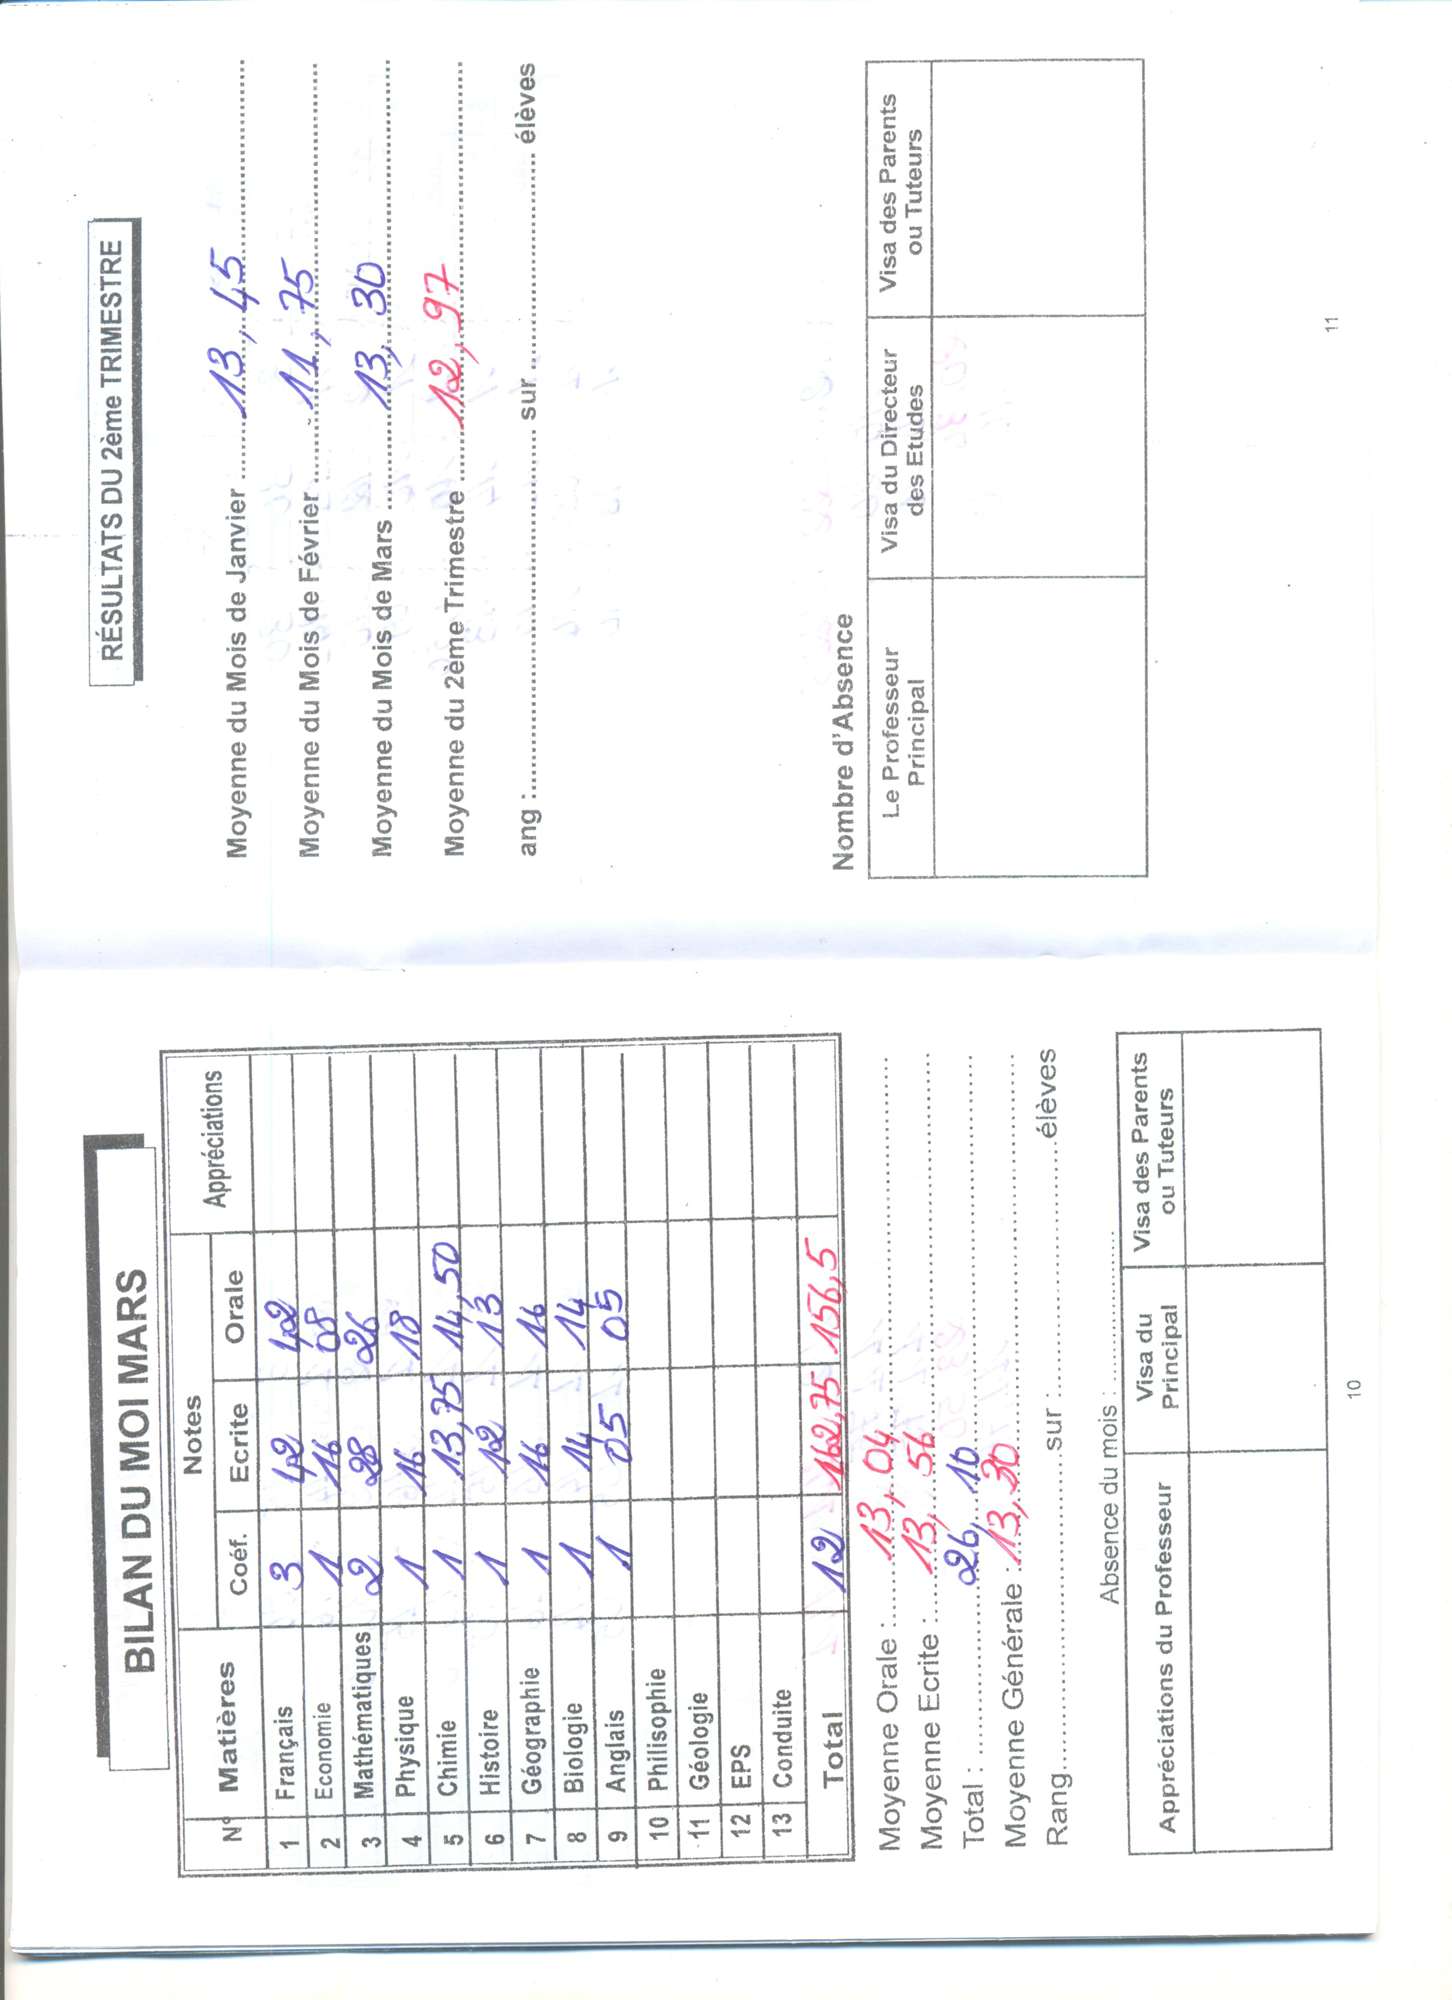 BILAN DU MOI MARS
N° Matières Notes Appréciations
Coéf. Ecrite Orale
1 Français 3 42 42
2 Economie 1 16 08
3 Mathématiques 2 28 26
4 Physique 1 16 18
5 Chimie 1 13,75 14,50
6 Histoire 1 12 13
7 Géographie 1 16 16
8 Biologie 1 14 14
9 Anglais 1 05 05
10 Philisophie
11 Géologie
12 EPS
13 Conduite
Total 12 162,75 156,5
Moyenne Orale : 13,04
Moyenne Ecrite : 13,56
Total : 26,10
Moyenne Générale : 13,30
Rang sur : élèves
Absence du mois :
Appréciations du Professeur Visa du Principal Visa des Parents ou Tuteurs
10
RÉSULTATS DU 2ème TRIMESTRE
Moyenne du Mois de Janvier 13,45
Moyenne du Mois de Février 11,75
Moyenne du Mois de Mars 13,30
Moyenne du 2ème Trimestre 12,97
ang : sur élèves
Nombre d'Absence
Le Professeur Principal Visa du Directeur des Etudes Visa des Parents ou Tuteurs
11